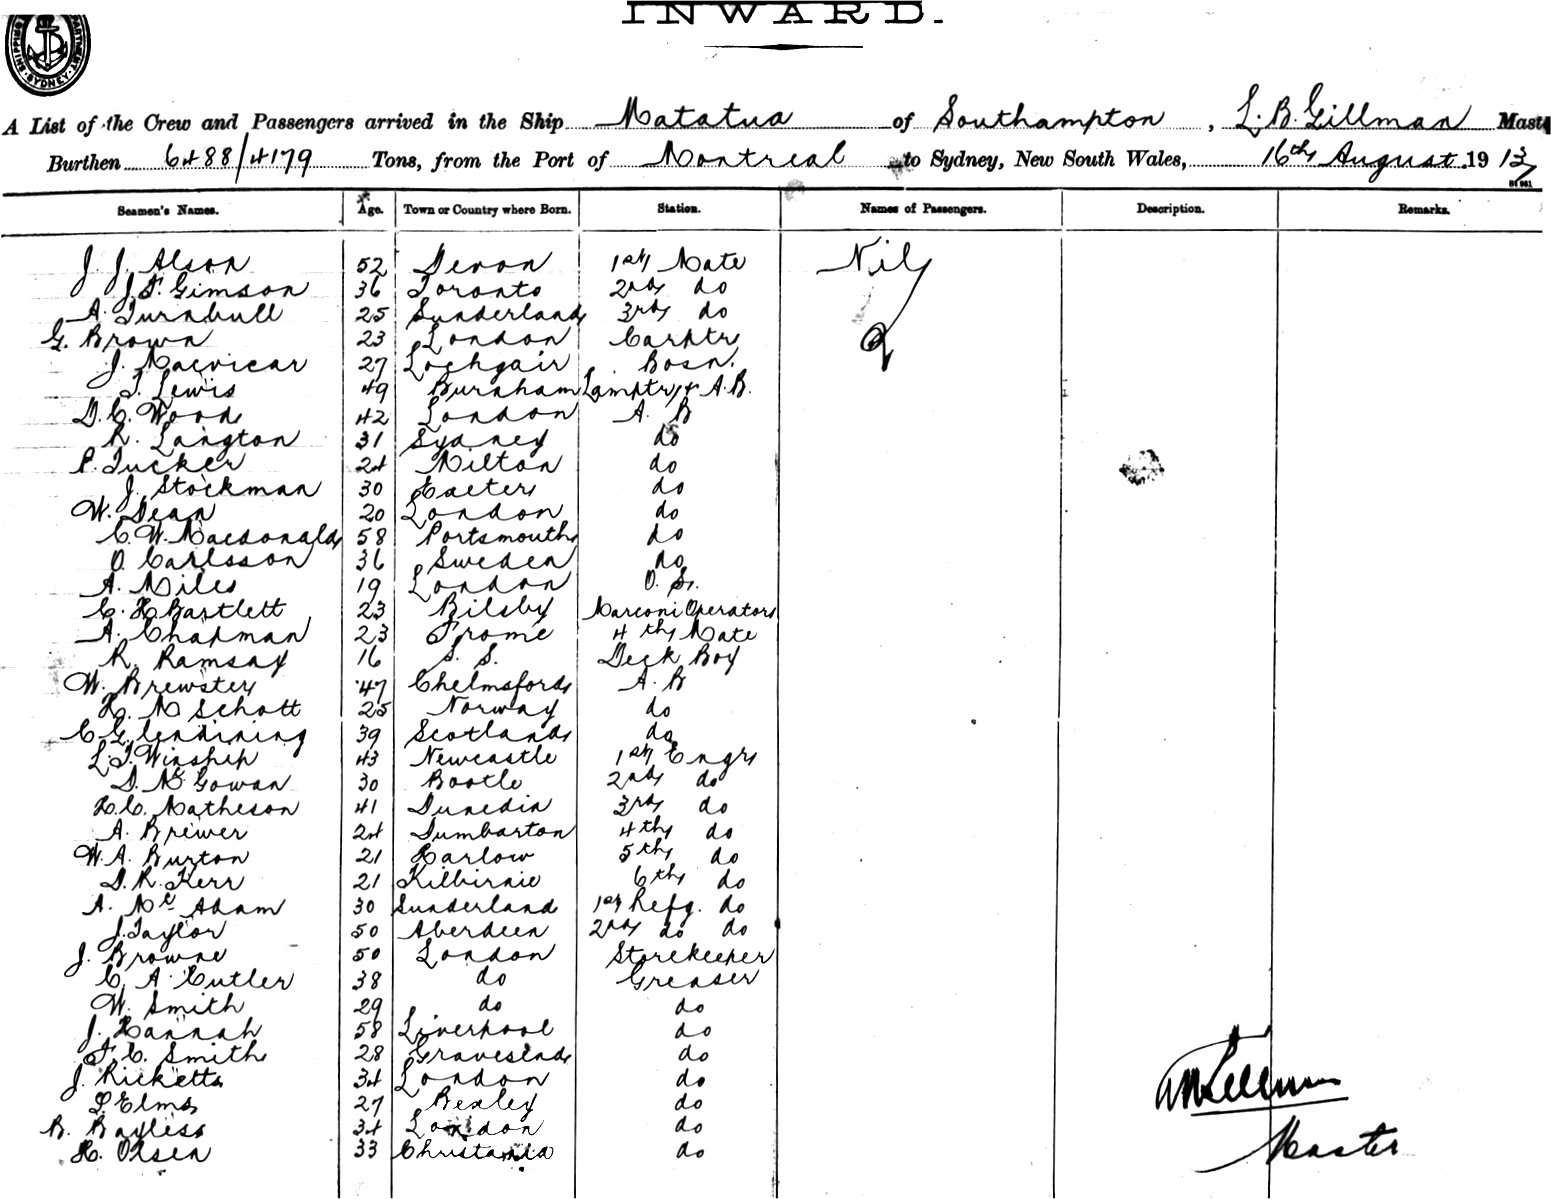 INWARD.
SHIPPING DEPARTMENT SYDNEY
A List of the Crew and Passengers arrived in the Ship Matatua of Southampton, L. B. Gillman Mast
Burthen 6488/4179 Tons, from the Port of Montreal to Sydney, New South Wales, 16th August 1913
Seamen's Names. Age. Town or Country where Born. Station. Names of Passengers. Description. Remarks.
J. J. Alson 52 Devon 1st Mate Nil
J. F. Gimson 36 Toronto 2nd do
A. Turnbull 25 Sunderland 3rd do
G. Brown 23 London Carptr
J. Macvicar 27 Lochgair Bosn.
T. Lewis 49 Burnham Lamptr & A.B.
D. C. Wood 42 London A. B
R. Langton 31 Sydney do
P. Tucker 24 Milton do
J. Stockman 30 Exeter do
W. Dean 20 London do
C. W. Macdonald 58 Portsmouth do
O. Carlsson 36 Sweden do
A. Miles 19 London O. S.
C. H. Bartlett 23 Bilsby Marconi Operator
A. Chapman 23 Frome 4th Mate
R. Ramsay 16 S. S. Deck Boy
W. Brewster 47 Chelmsford A. B
H. M Schott 25 Norway do
C Glendining 39 Scotland do
L. T. Winship 43 Newcastle 1st Engr
D. Mc Gowan 30 Bootle 2nd do
H. C. Matheson 41 Dunedin 3rd do
A. Brewer 24 Dumbarton 4th do
W. A. Burton 21 Harlow 5th do
D. R. Kerr 21 Kilbirnie 6th do
A. Mc Adam 30 Sunderland 1st Refg. do
J. Taylor 50 Aberdeen 2nd do do
J. Browne 50 London Storekeeper
C. A. Cutler 38 do Greaser
W. Smith 29 do do
J. Hannah 58 Liverpool do
F. C. Smith 28 Gravesend do
J. Ricketts 34 London do
Elms 27 Bexley do
B. Bayless 34 London do
H. Olsen 33 Christania do
Master